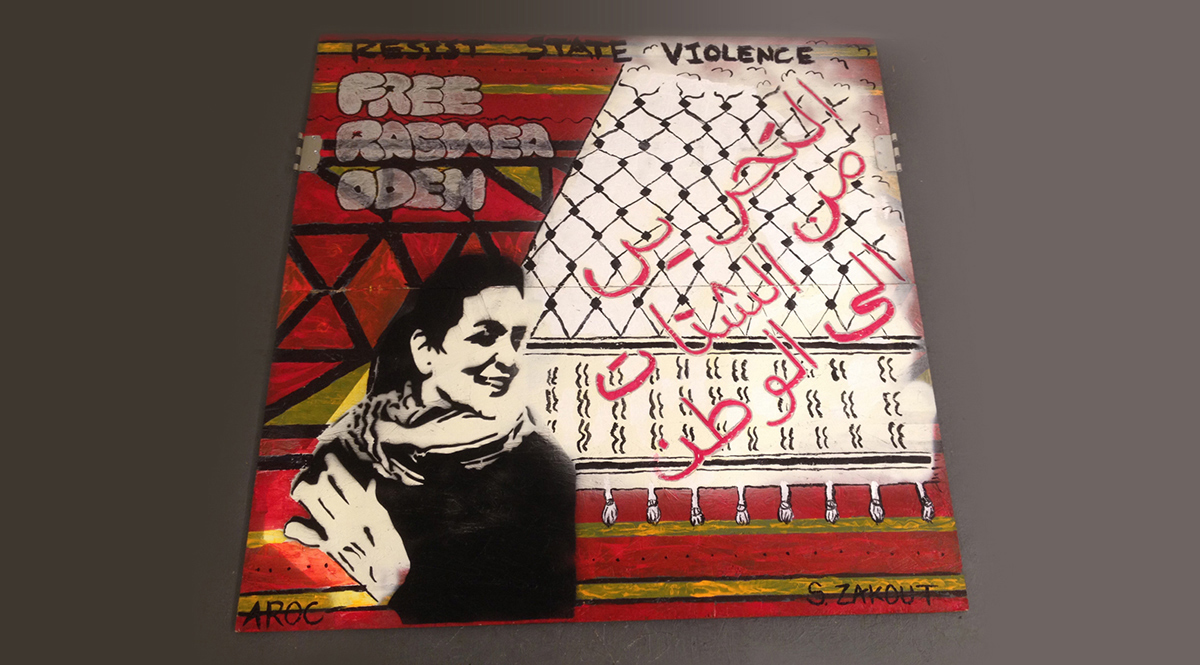 RESIST STATE VIOLENCE
FREE
RASMEA
ODEH
التحرير
من الشتات
الى الوطن
AROC
S. ZAKOUT